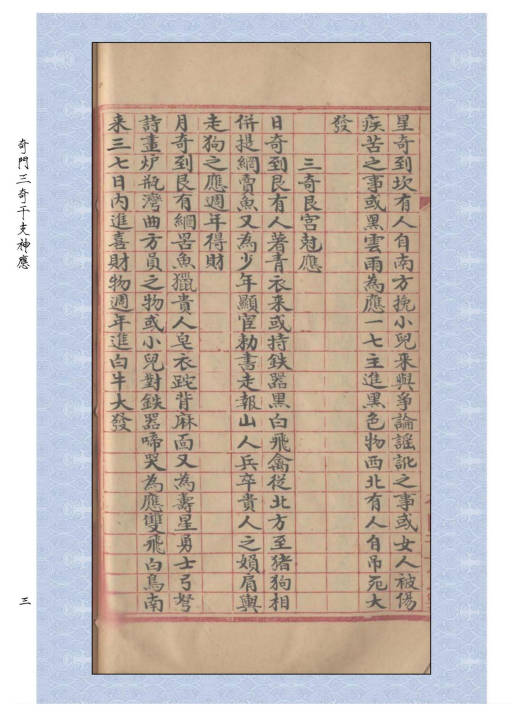 星奇到坎有人自南方挽小兒來與爭論謡訛之事或女人被傷
疾苦之事或黑雲雨為應一七主進黑色物西北有人自吊死大
發
三奇艮宮尅應
日奇到艮有人著青衣來或持鉄器黑白飛禽従北方至猪狗相
併提網賣魚又為少年顯宦勅書走報山人兵卒貴人之娟肩輿
走狗之應週年得財
月奇到艮有網罟魚獵貴人皂衣跎背麻面又為壽星勇士弓弩
詩畫炉瓶灣曲方員之物或小兒對鉄器啼哭為應雙飛白鳥南
来三七日內進喜財物週年進白牛大發
奇門三奇干支神應
三